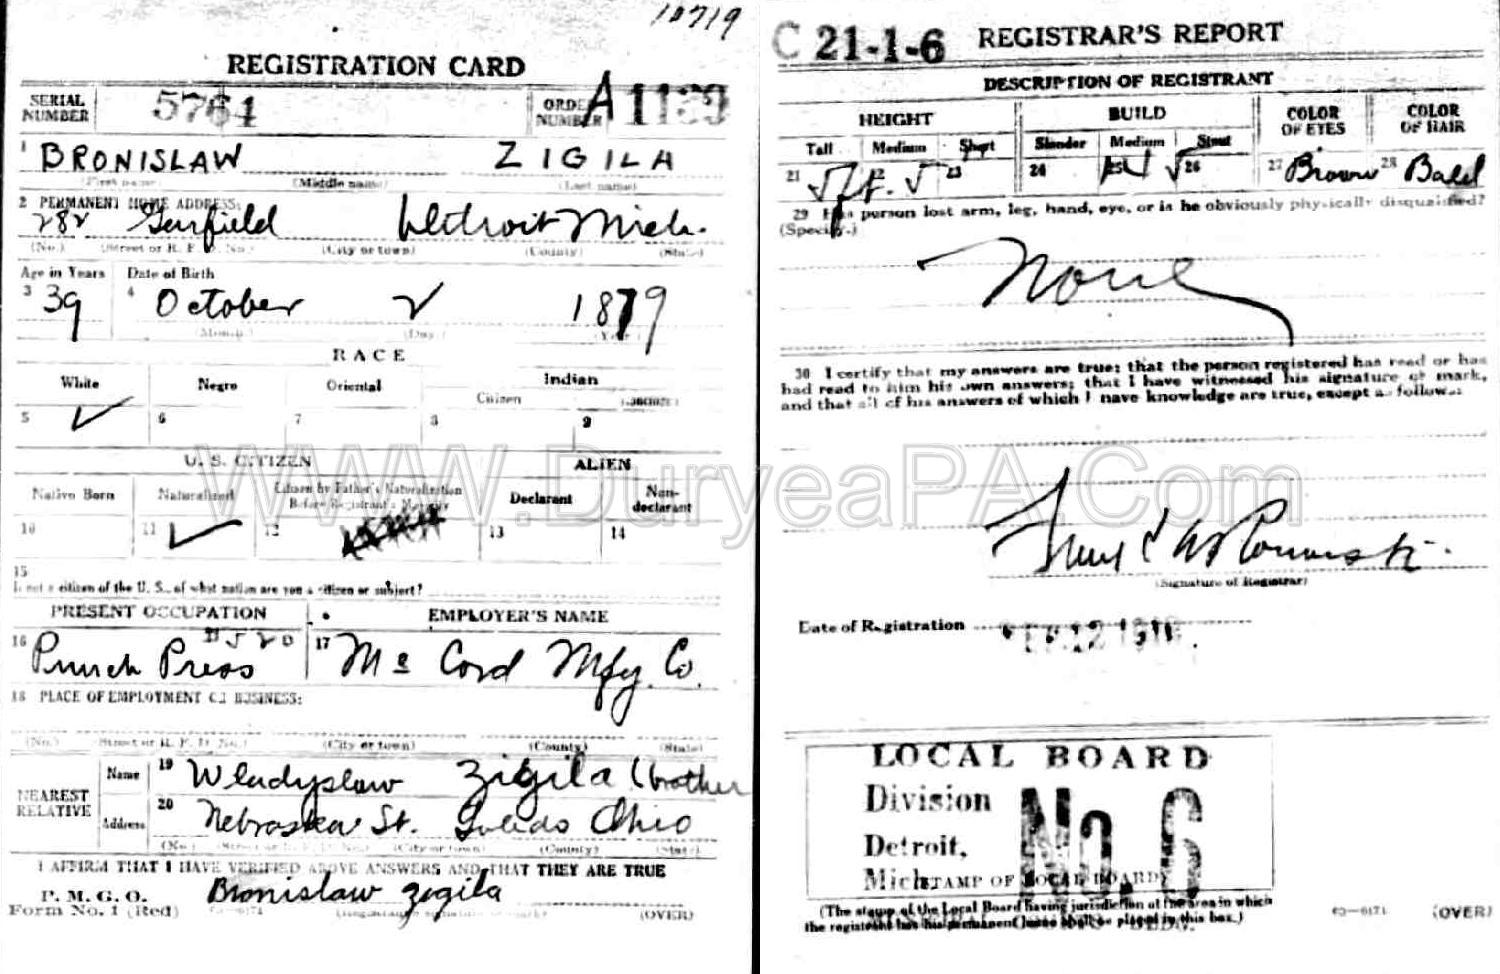 10719
REGISTRATION CARD
SERIAL NUMBER 5764 ORDER NUMBER A1139
1 BRONISLAW ZIGILA
(First name) (Middle name) (Last name)
2 PERMANENT HOME ADDRESS:
282 Garfield Detroit Mich.
(No.) (Street or R. F. D. No.) (City or town) (County) (State)
Age in Years Date of Birth
3 39 4 October 2 1879
(Month) (Day) (Year)
RACE
White Negro Oriental Indian
Citizen
5 ✓ 6 7 8 9
U. S. CITIZEN ALIEN
Native Born Naturalized Citizen by Father's Naturalization Before Registrant's Majority Declarant Non-declarant
10 11 ✓ 12 13 14
15
If not a citizen of the U. S., of what nation are you a citizen or subject?
PRESENT OCCUPATION EMPLOYER'S NAME
16 Punch Press 17 Mc Cord Mfg. Co.
18 PLACE OF EMPLOYMENT OR BUSINESS:
(No.) (Street or R. F. D. No.) (City or town) (County) (State)
NEAREST RELATIVE
Name 19 Wladyslaw Zigila (brother
Address 20 Nebraska St. Toledo Ohio
(No.) (Street or R. F. D. No.) (City or town) (County) (State)
I AFFIRM THAT I HAVE VERIFIED ABOVE ANSWERS AND THAT THEY ARE TRUE
P. M. G. O.
Form No. 1 (Red) Bronislaw Zigila
(Registrant's signature or mark) (OVER)
C 21-1-6 REGISTRAR'S REPORT
DESCRIPTION OF REGISTRANT
HEIGHT BUILD COLOR OF EYES COLOR OF HAIR
Tall Medium Short Slender Medium Stout
21 22 23 24 25 26 27 Brown 28 Bald
29 Has person lost arm, leg, hand, eye, or is he obviously physically disqualified?
(Specify.)
None
30 I certify that my answers are true; that the person registered has read or has
had read to him his own answers; that I have witnessed his signature or mark,
and that all of his answers of which I have knowledge are true, except as follows:
WWW.DuryeaPA.Com
(Signature of Registrar)
Date of Registration SEP 12 1918
LOCAL BOARD
Division No. 6
Detroit,
Mich.
(STAMP OF LOCAL BOARD)
(The stamp of the Local Board having jurisdiction of the area in which
the registrant has his permanent home shall be placed in this box.)
(OVER)